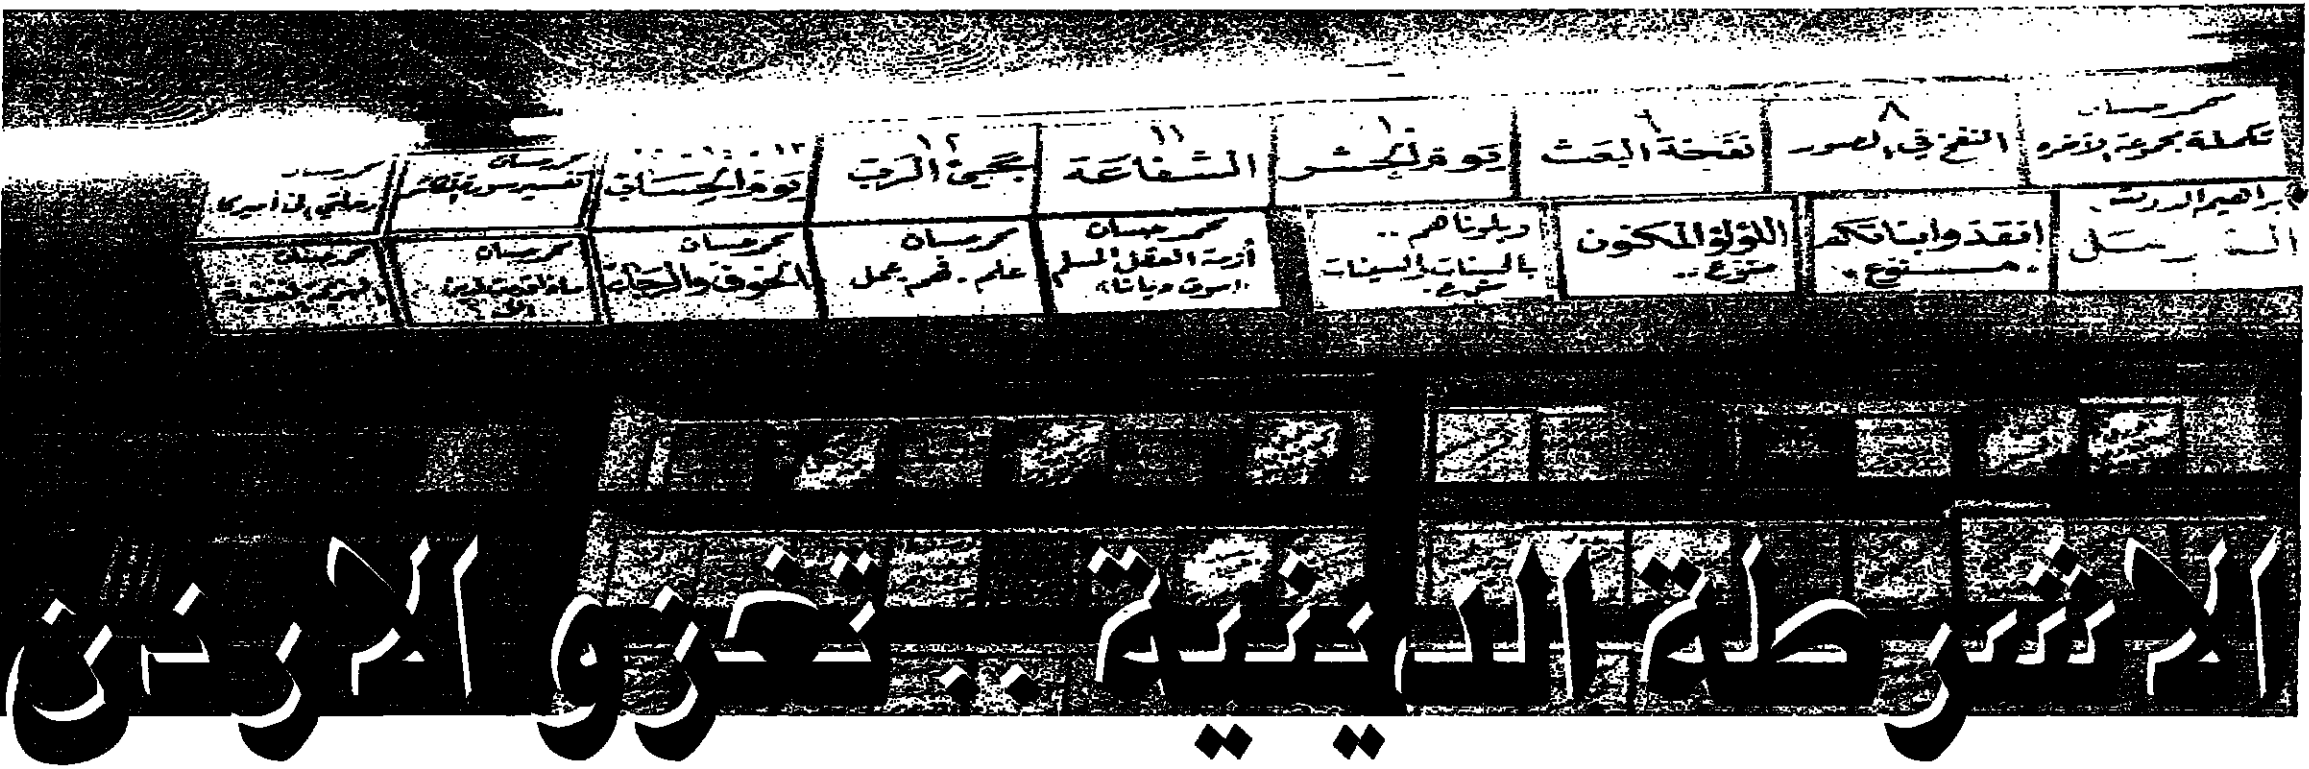 محمد حسان
تكملة مجموعة الآخرة
٨
النفخ في الصور
٩
نفخة البعث
١٠
يوم الحشر
١١
الشفاعة
١٢
مجيئ الرب
١٣
يوم الحساب
محمد حسان
تفسير سورة
محمد حسان
رحلتي إلى أميركا
ابراهيم الدويش
افقدوا بناتكم
منوع
اللؤلؤ المكنون
منوع ..
وبلوناهم ..
بالحسنات والسيئات
محمد حسان
أزمة العقل المسلم
محمد حسان
علم . فهم . عمل
محمد حسان
الخوف والرجاء
محمد حسان
محمد حسان
الاشرطة الدينية .. تغزو الاردن